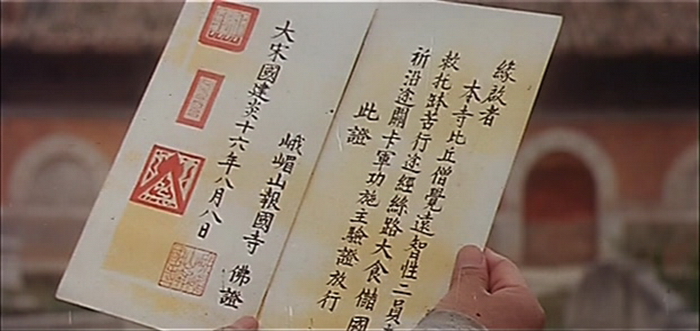 緣啟者
本寺比丘僧覺遠智性二員
敕托缽苦行途經絲路大食儲國
祈沿途關卡軍功施主驗證放行
此證
峨嵋山報國寺 佛證
大宋國建炎十六年八月八日